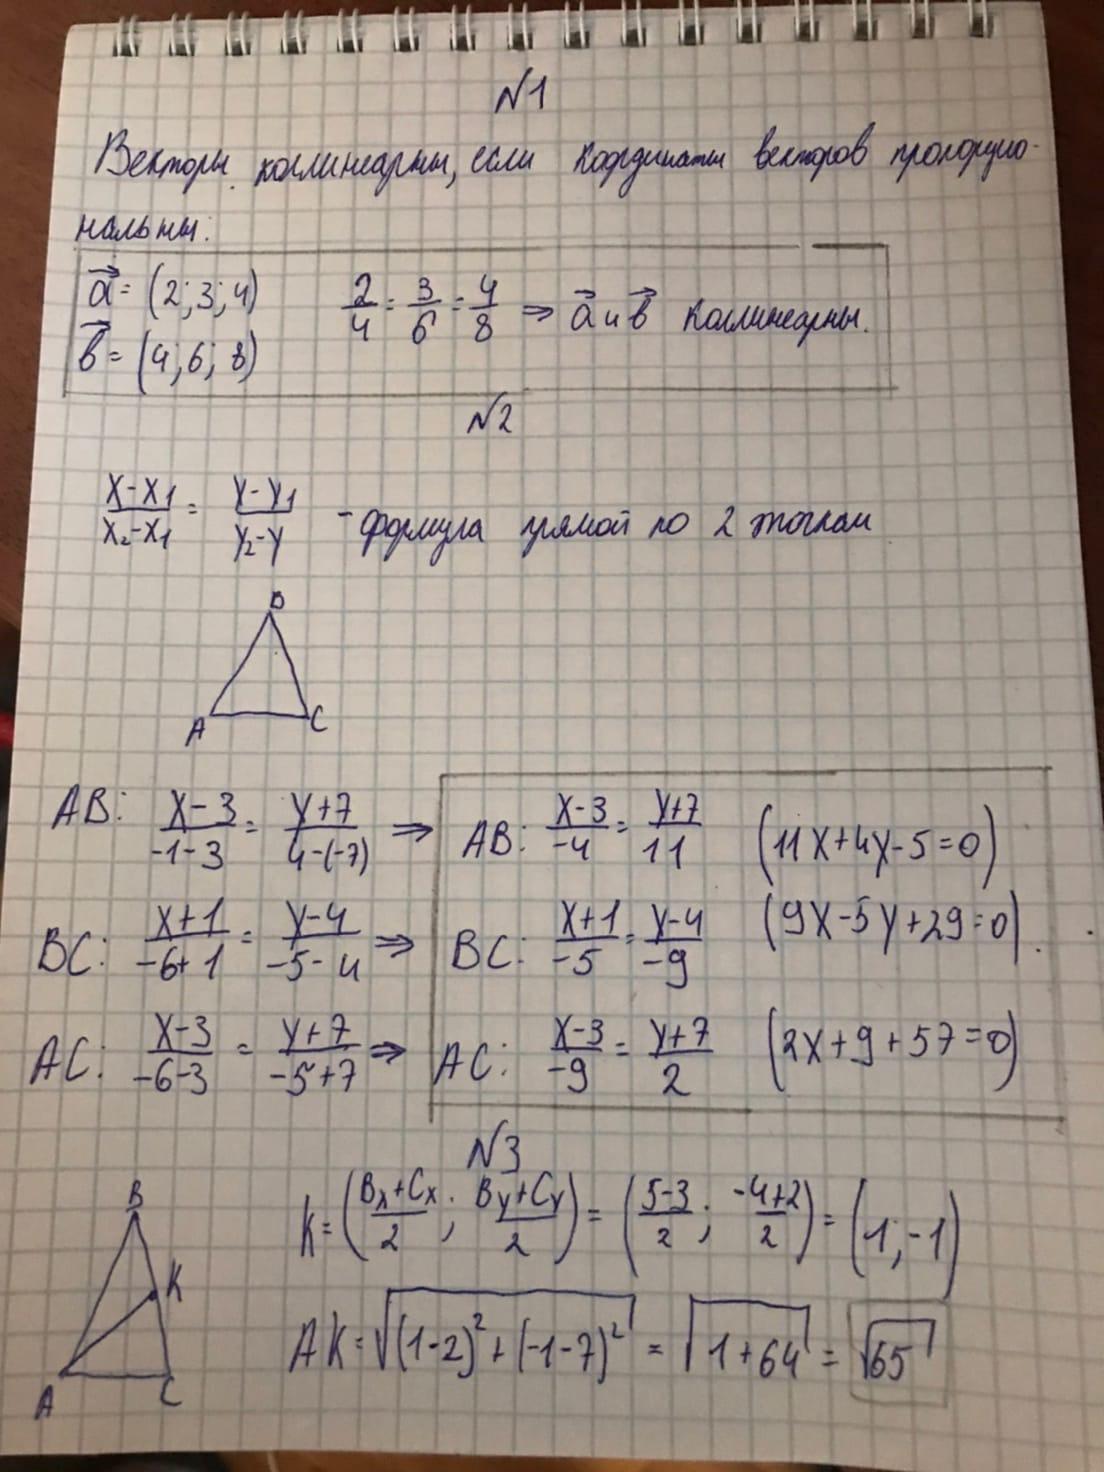 №1
Векторы коллинеарны, если координаты векторов пропорцио-
нальны:
a⃗ = (2; 3; 4)
b⃗ = (4; 6; 8)
2/4 = 3/6 = 4/8 ⇒ a⃗ и b⃗ коллинеарны.
№2
(x-x₁)/(x₂-x₁) = (y-y₁)/(y₂-y) - формула прямой по 2 точкам
B
A C
AB: (x-3)/(-1-3) = (y+7)/(4-(-7)) ⇒ AB: (x-3)/(-4) = (y+7)/11 (11x+4y-5=0)
BC: (x+1)/(-6+1) = (y-4)/(-5-4) ⇒ BC: (x+1)/(-5) = (y-4)/(-9) (9x-5y+29=0).
AC: (x-3)/(-6-3) = (y+7)/(-5+7) ⇒ AC: (x-3)/(-9) = (y+7)/2 (2x+9+57=0)
№3
B
K
A C
K = ((Bx+Cx)/2; (By+Cy)/2) = ((5-3)/2; (-4+2)/2) = (1; -1)
AK = √((1-2)²+(-1-7)²) = √(1+64) = √65